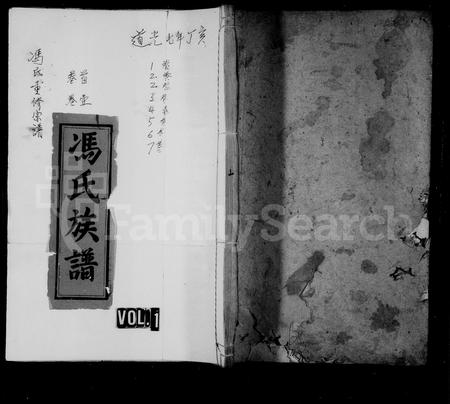 道光七年丁亥
馮氏重修宗譜
首壹
卷卷
馮氏族譜
1
2
2
3
4
5
6
7
VOL.1
FamilySearch